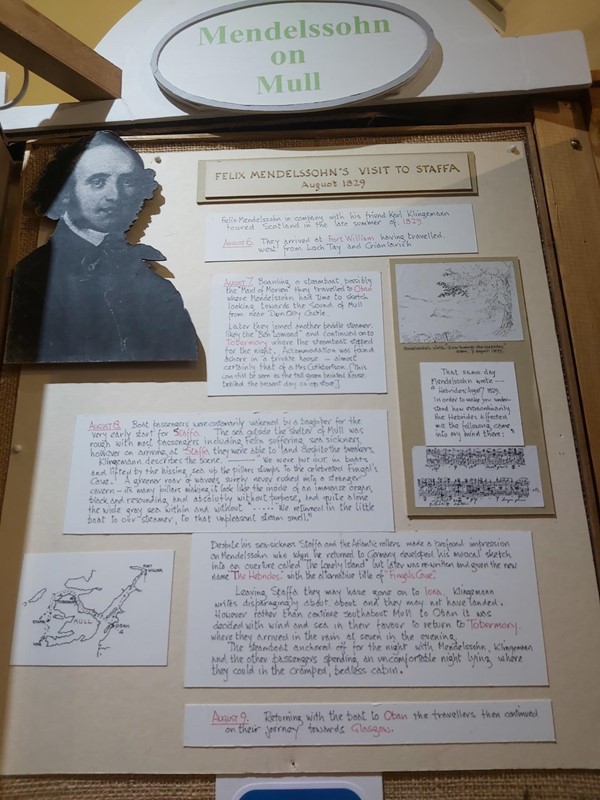 Mendelssohn
on
Mull
FELIX MENDELSSOHN'S VISIT TO STAFFA
August 1829
Felix Mendelssohn in company with his friend Karl Klingemann
toured Scotland in the late summer of 1829.
August 6. They arrived at Fort William having travelled
west from Loch Tay and Crianlarich
August 7. Boarding a steamboat, possibly
the "Maid of Morven" they travelled to Oban
where Mendelssohn had time to sketch
looking towards the Sound of Mull
from near Dunolly Castle.
Later they joined another paddle steamer,
likely the "Ben Lomond" and continued onto
Tobermory where the steamboat stopped
for the night. Accommodation was found
ashore in a private house - almost
certainly that of a Mrs Cuthbertson. [This
can still be seen as the tall green painted house
behind the present day co-op store]
That same day
Mendelssohn wrote —
"Hebrides, August 7 1829.
In order to make you under-
stand how extraordinarily
the Hebrides affected
me the following came
into my mind there:"
August 8. Boat passengers were customarily wakened by a bagpiper for the
very early start for Staffa. The sea outside the shelter of Mull was
rough with most passengers including Felix suffering sea sickness,
however on arriving at Staffa they were able to land despite the breakers.
Klingemann describes the scene, "We were put out in boats
and lifted by the hissing sea up the pillar stumps to the celebrated Fingal's
Cave. A greener roar of waves surely never rushed into a stranger
cavern - its many pillars making it look like the inside of an immense organ,
black and resounding, and absolutely without purpose, and quite alone
the wide gray sea within and without" ..... "We returned in the little
boat to our steamer, to that unpleasant steam smell."
Despite his sea-sickness Staffa and the Atlantic rollers made a profound impression
on Mendelssohn who when he returned to Germany developed his musical sketch
into an overture called "The Lonely Island" but later was re-written and given the new
name "The Hebrides" with the alternative title of "Fingal's Cave".
Leaving Staffa they may have gone on to Iona. Klingemann
writes disparagingly about about and they may not have landed.
However rather than continue southabout Mull to Oban it was
decided with wind and sea in their favour to return to Tobermory
where they arrived in the rain at seven in the evening.
The steamboat anchored off for the night with Mendelssohn, Klingemann
and the other passengers spending an uncomfortable night lying where
they could in the cramped, bedless cabin.
MULL
August 9. Returning with the boat to Oban the travellers then continued
on their journey towards Glasgow.